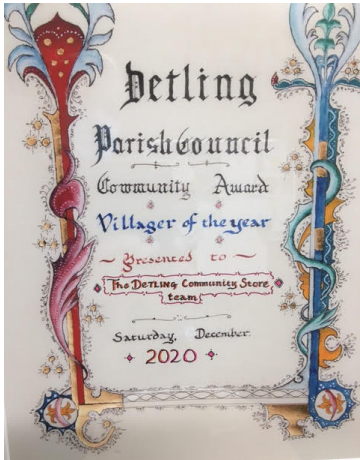 Detling
Parish Council
Community Award
Villager of the year
~ Presented to ~
The DETLING Community Store
team
Saturday, December.
2020